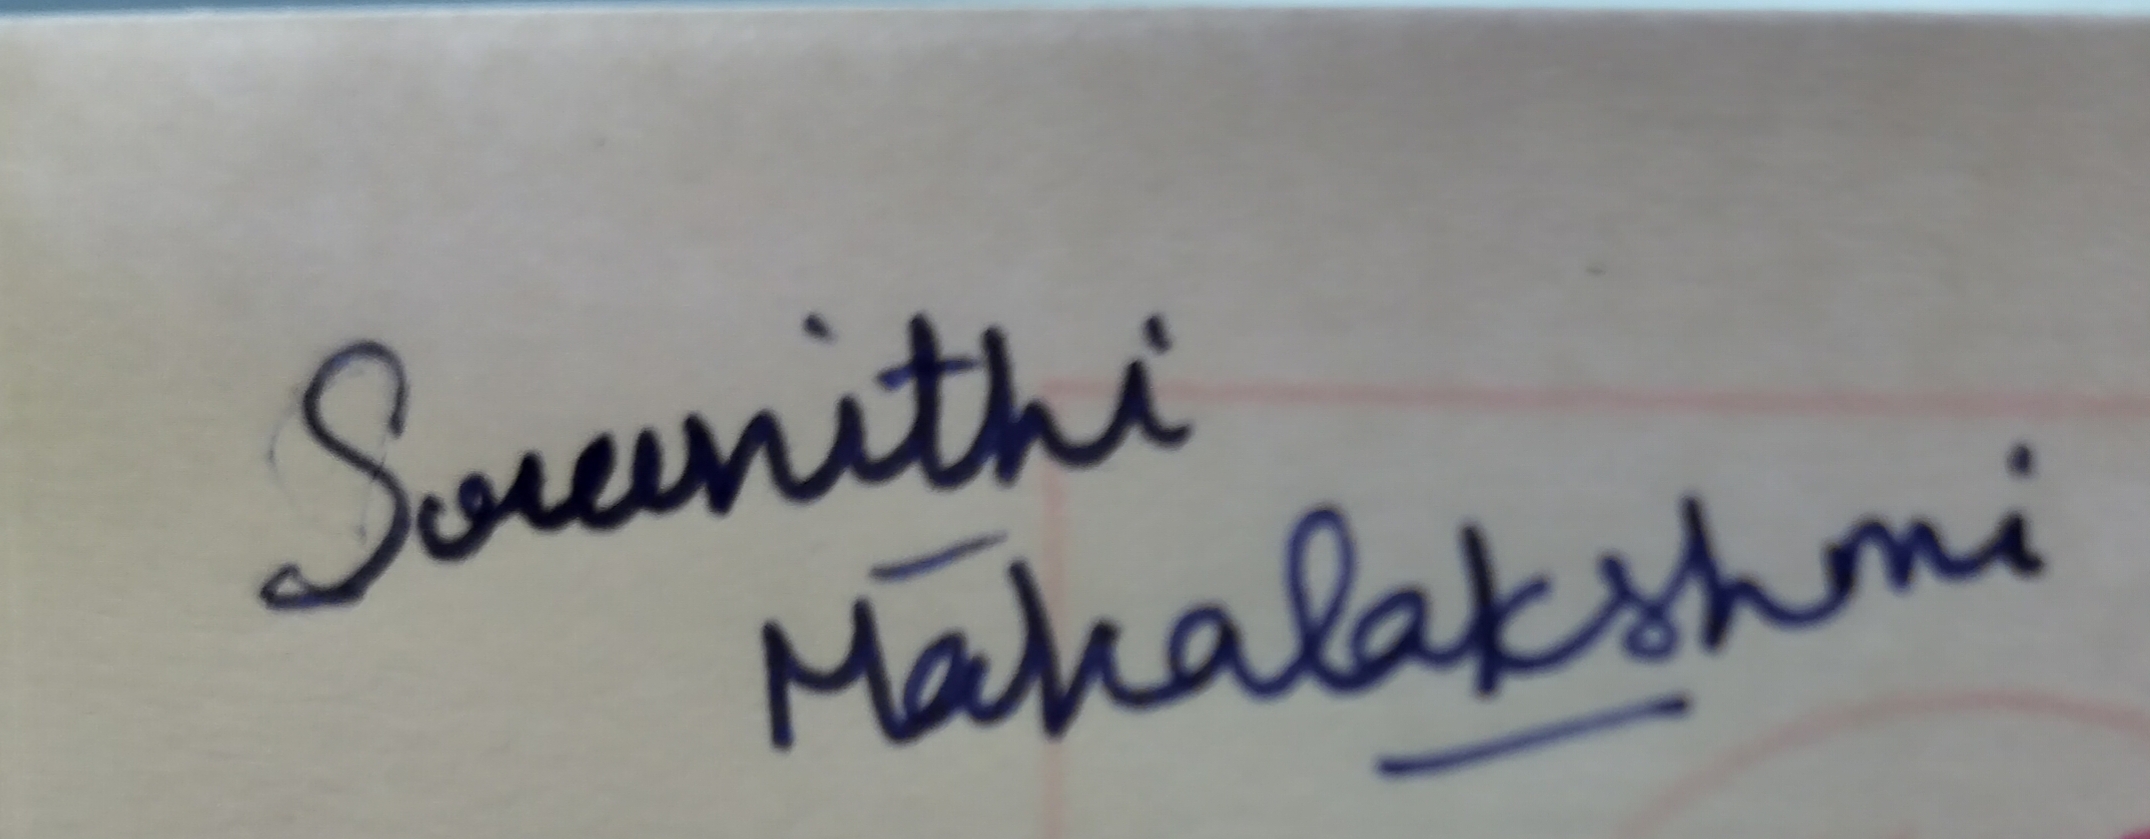 Sreenithi
Mahalakshmi